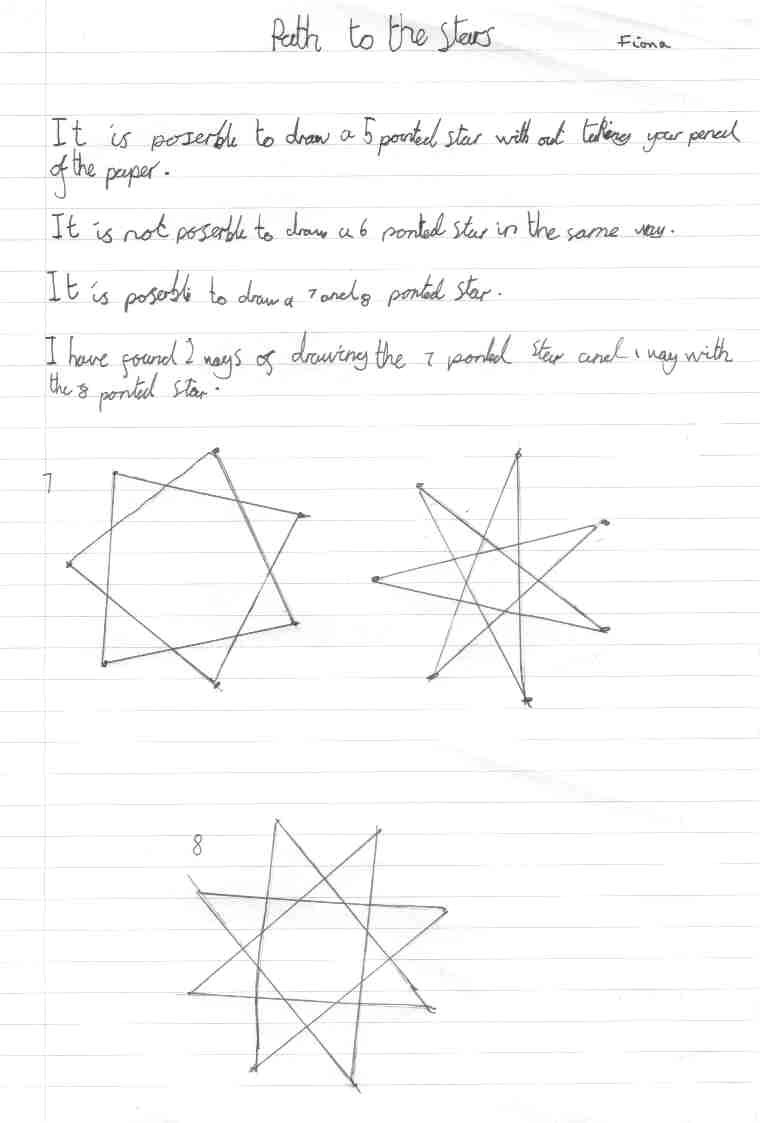 Path to the stars
Fiona
It is poserble to draw a 5 pointed star with out taking your pencil
of the paper.
It is not poserble to draw a 6 ponted star in the same way.
It is poserble to draw a 7 and 8 ponted star.
I have found 2 ways of drawing the 7 ponted star and 1 way with
the 8 ponted star.
7
8